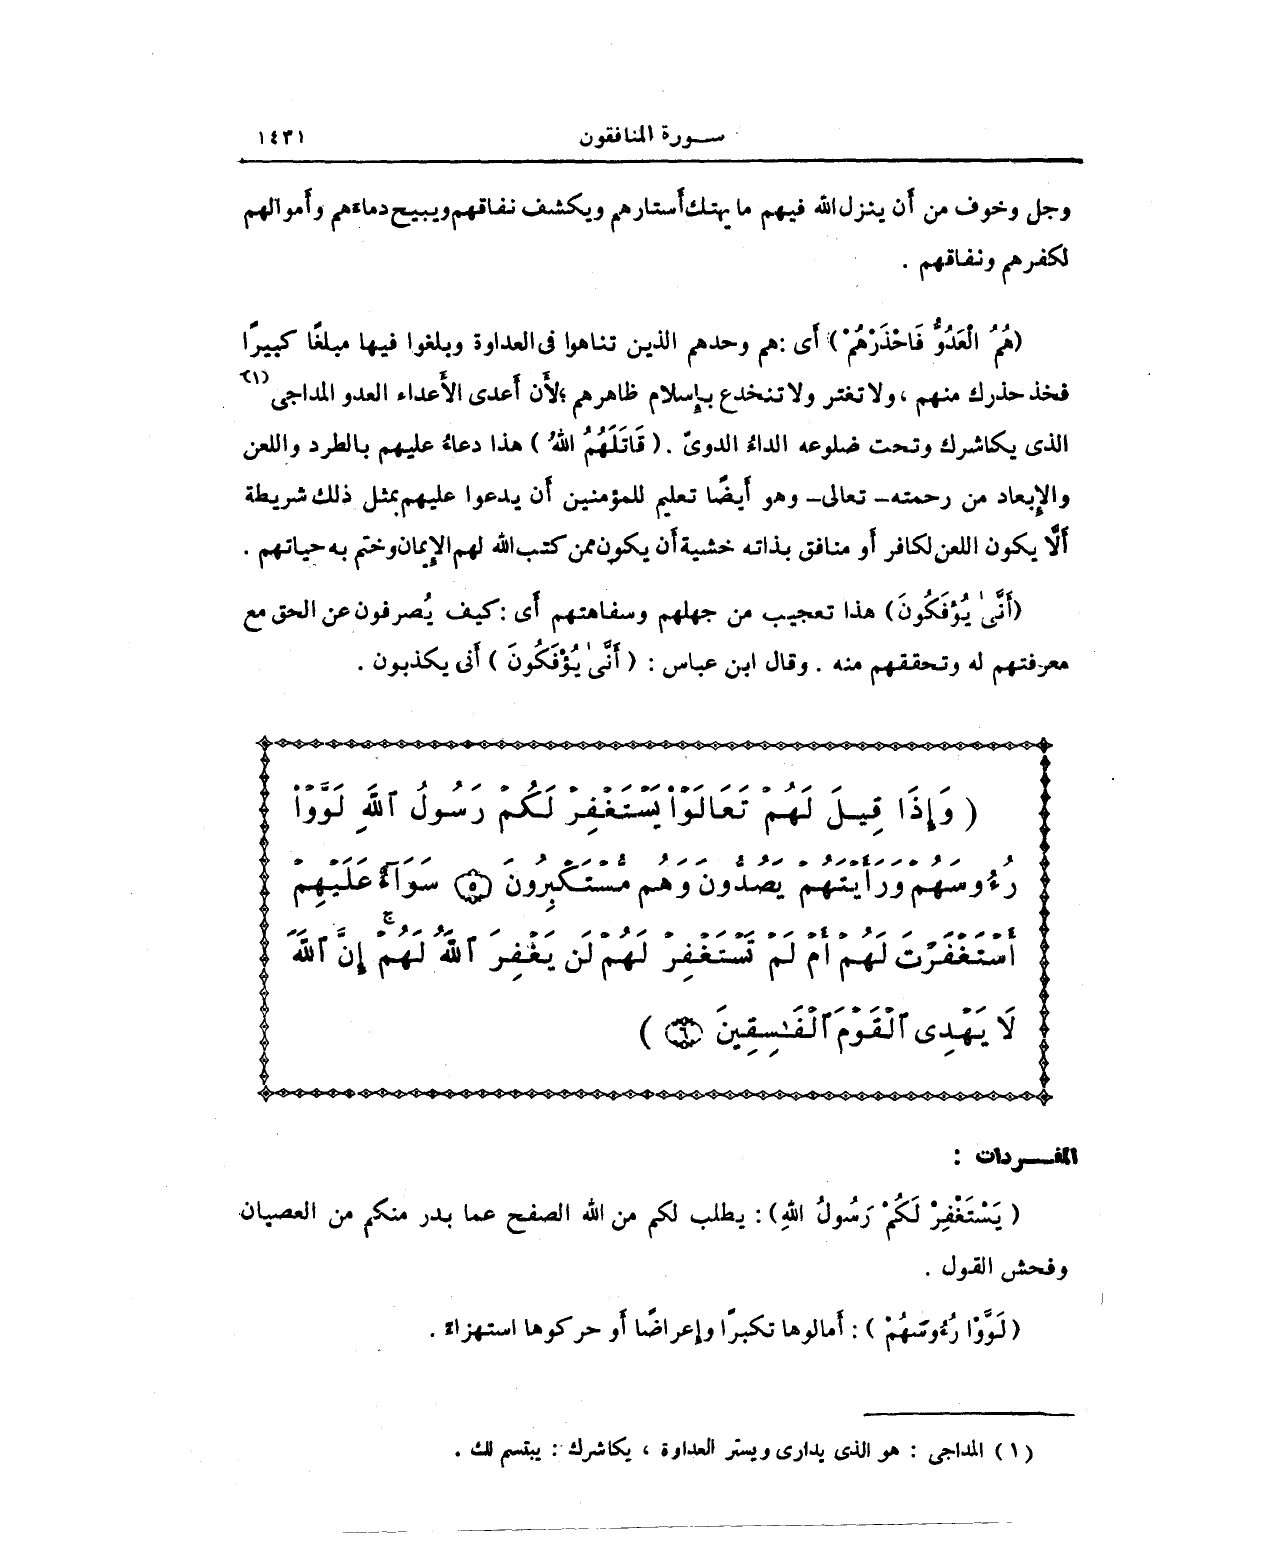 سورة المنافقون ١٤٣١
وجل وخوف من أن ينزل الله فيهم ما يهتك أستارهم ويكشف نفاقهم ويبيح دماءهم وأموالهم
لكفرهم ونفاقهم .
(هُمُ الْعَدُوُّ فَاحْذَرْهُمْ) أى : هم وحدهم الذين تناهوا فى العداوة وبلغوا فيها مبلغًا كبيرًا
فخذ حذرك منهم ، ولا تغتر ولا تنخدع بإسلام ظاهرهم ؛ لأن أعدى الأعداء العدو المداجى (١)
الذى يكاشرك وتحت ضلوعه الداءُ الدوىّ . ( قَاتَلَهُمُ اللهُ ) هذا دعاءٌ عليهم بالطرد واللعن
والإبعاد من رحمته – تعالى – وهو أيضًا تعليم للمؤمنين أن يدعوا عليهم بمثل ذلك شريطة
ألَّا يكون اللعن لكافر أو منافق بذاته خشية أن يكون ممن كتب الله لهم الإيمان وختم به حياتهم .
(أَنَّىٰ يُؤْفَكُونَ) هذا تعجيب من جهلهم وسفاهتهم أى : كيف يُصرفون عن الحق مع
معرفتهم له وتحققهم منه . وقال ابن عباس : ( أَنَّىٰ يُؤْفَكُونَ ) أنى يكذبون .
( وَإِذَا قِيلَ لَهُمْ تَعَالَوْا۟ يَسْتَغْفِرْ لَكُمْ رَسُولُ ٱللَّهِ لَوَّوْا۟
رُءُوسَهُمْ وَرَأَيْتَهُمْ يَصُدُّونَ وَهُم مُّسْتَكْبِرُونَ ۝٥ سَوَآءٌ عَلَيْهِمْ
أَسْتَغْفَرْتَ لَهُمْ أَمْ لَمْ تَسْتَغْفِرْ لَهُمْ لَن يَغْفِرَ ٱللَّهُ لَهُمْ ۚ إِنَّ ٱللَّهَ
لَا يَهْدِى ٱلْقَوْمَ ٱلْفَـٰسِقِينَ ۝٦ )
المفردات :
( يَسْتَغْفِرْ لَكُمْ رَسُولُ اللهِ) : يطلب لكم من الله الصفح عما بدر منكم من العصيان
وفحش القول .
(لَوَّوْا رُءُوسَهُمْ ) : أمالوها تكبرًا وإعراضًا أو حركوها استهزاءً .
(١) المداجى : هو الذى يدارى ويستر العداوة ، يكاشرك : يبتسم لك .